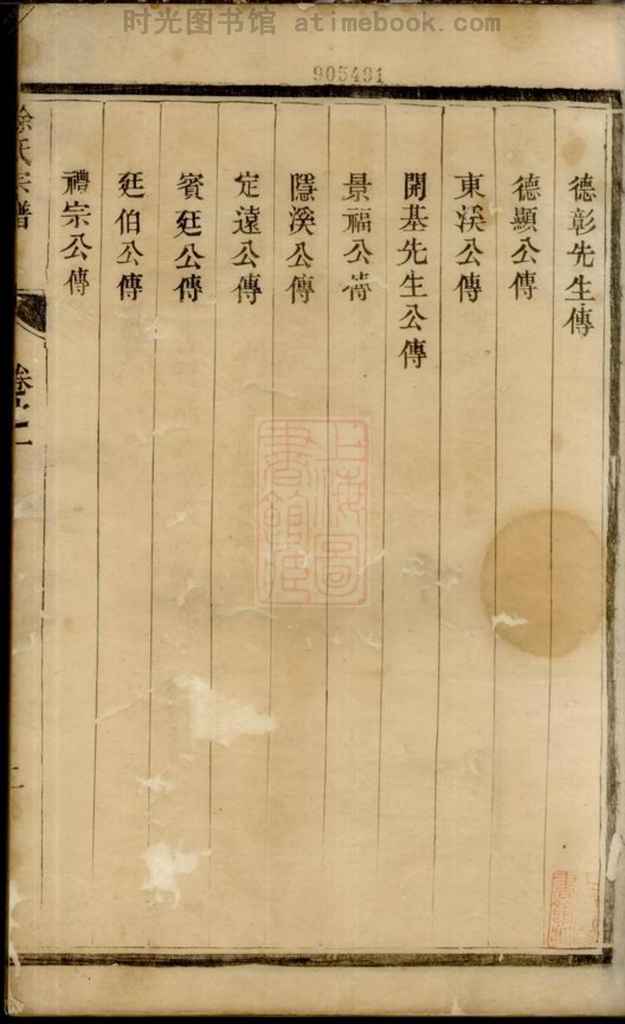 时光图书馆 atimebook.com
905491
德彰先生傳
德顯公傳
東溪公傳
開基先生公傳
景福公傳
隱溪公傳
定遠公傳
賓廷公傳
廷伯公傳
禮宗公傳
徐氏宗譜
卷之一
二
上海圖書館藏